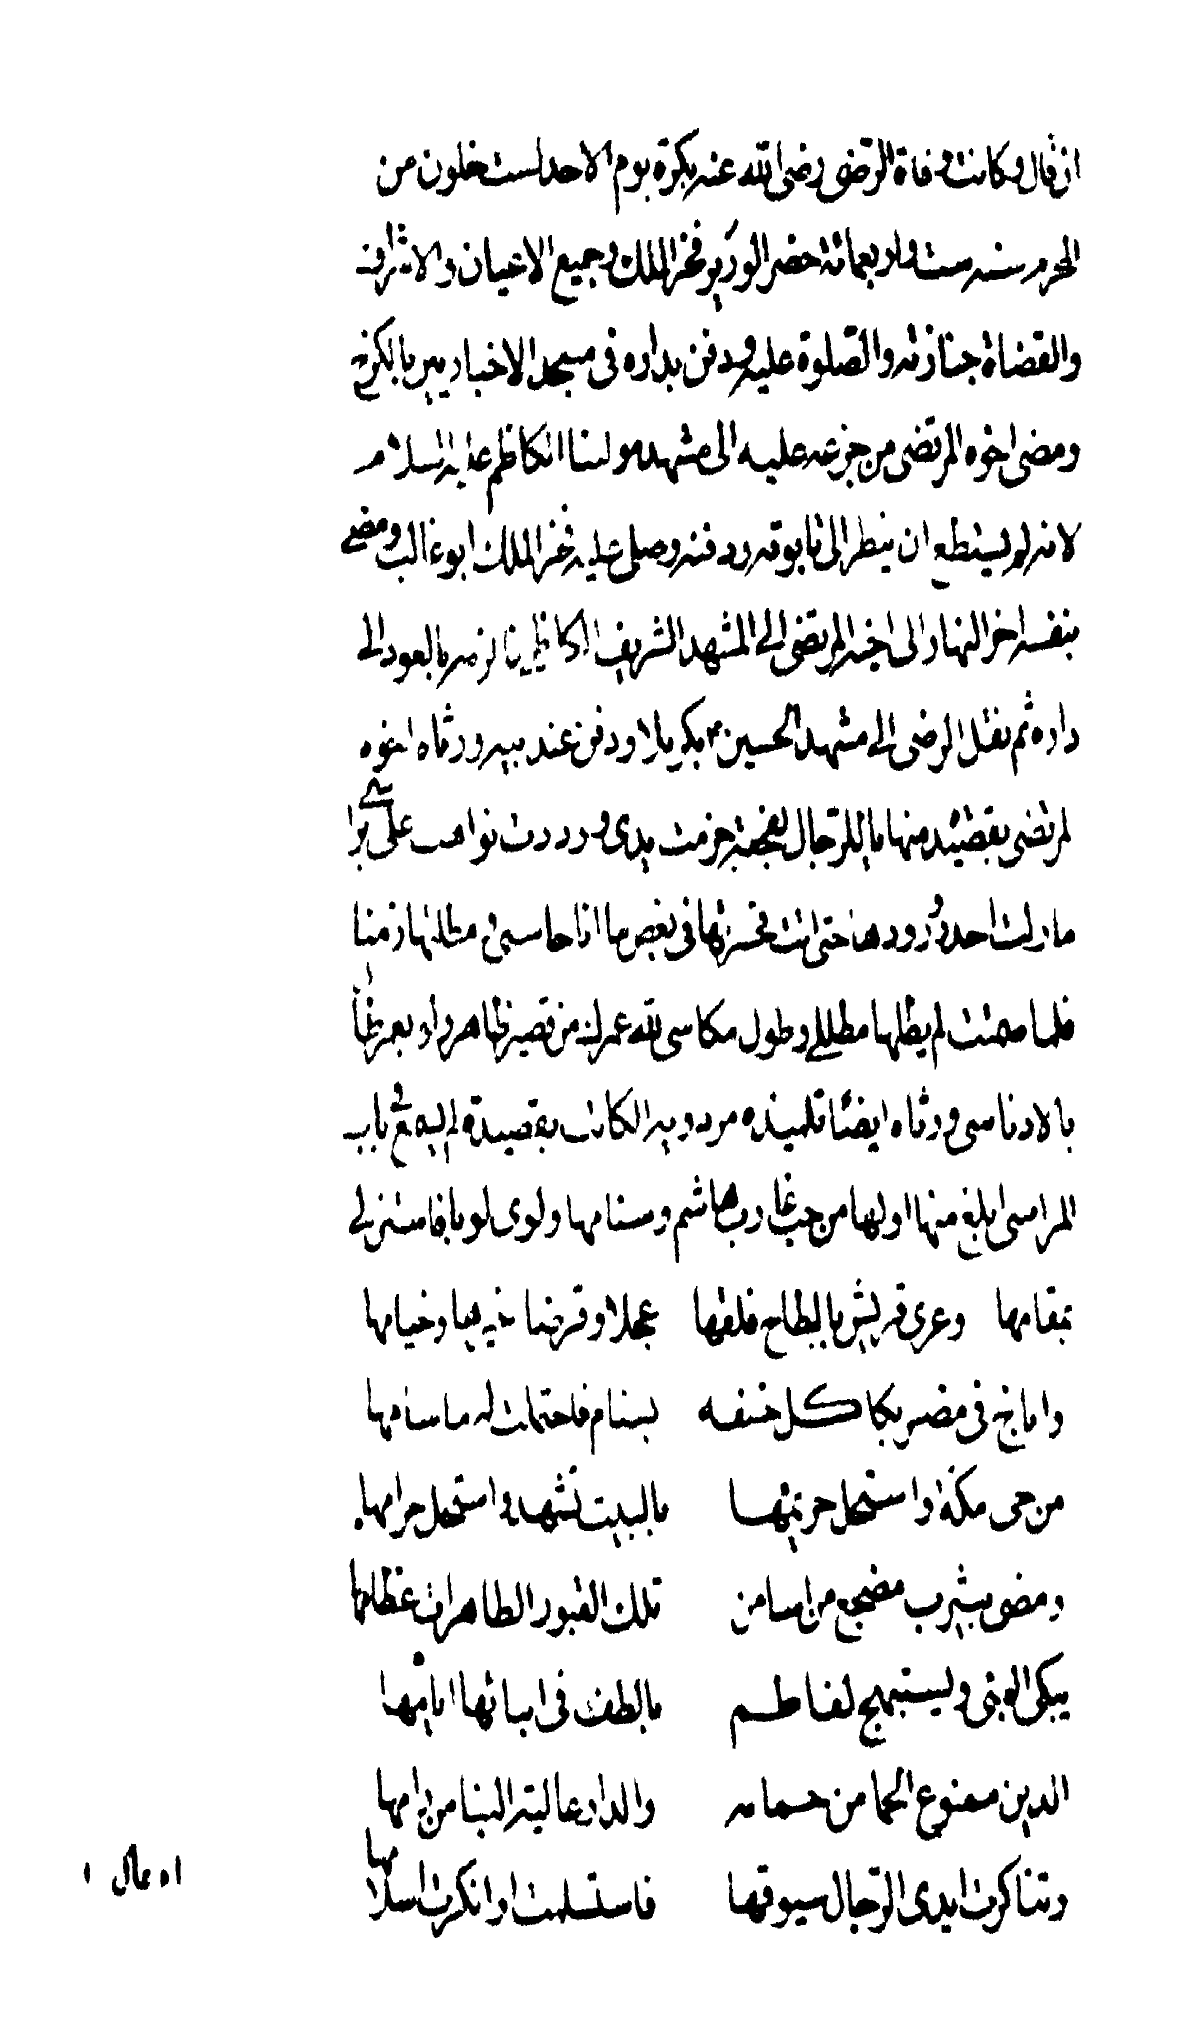 ان قال وكانت وفاة الرضى رضى الله عنه بكرة يوم الاحد لست خلون من
المحرم سنه ست واربعمائة حضر الوزير فخر الملك وجميع الاعيان والاشراف
والقضاة جنازته والصلوة عليه ودفن بداره فى مسجد الانباريين بالكرخ
ومضى اخوه المرتضى من جزعه عليه الى مشهد مولينا الكاظم عليه السلام
لانه لم يستطع ان ينظر الى تابوته ودفنه وصلى عليه فخر الملك ابو غالب ومضى
بنفسه اخر النهار الى اخيه المرتضى الى المشهد الشريف الكاظمى فالزمه بالعود الى
داره ثم نقل الرضى الى مشهد الحسين م بكربلا ودفن عند ابيه ورثاه اخوه
المرتضى بقصيده منها يا للرجال لفجعة جذمت يدى ووددت لو ذهبت على براسى
ما زلت احذر ورودها حتى اتت فحسوتها فى بعض ما انا حاسى ومطلتها زمنا
فلما صممت لم يثنها مطلى وطول مكاسى لله عمرك من قصير طاهر ولرب عمر طال
بالادناس ورثاه ايضا تلميذه مهيار الكاتب بقصيدة لم اسمع فى باب
المراسى ابلغ منها اولها من جب غارب هاشم وسنامها ولوى لويا فاستزل
بمقامها وغزى قريش بالبطاح فلفها عجلا وقوض عزها وخيامها
واناخ فى مضر بكلكل خسفه يستام فاحتملت له ما سامها
من حل مكة واستحل حريمها بالبيت تشهد واستحل حرامها
ومضى بيثرب مضجعا من سامن تلك القبور الطاهرات عظامها
يبكى النبى ويستهيج لفاطم بالطف فى ابنائها ايامها
الدين ممنوع الحما من حماه والدار عالية البنا من رامها
وتناكرت ايدى الرجال سيوفها فاستسلمت او انكرت اسلامها